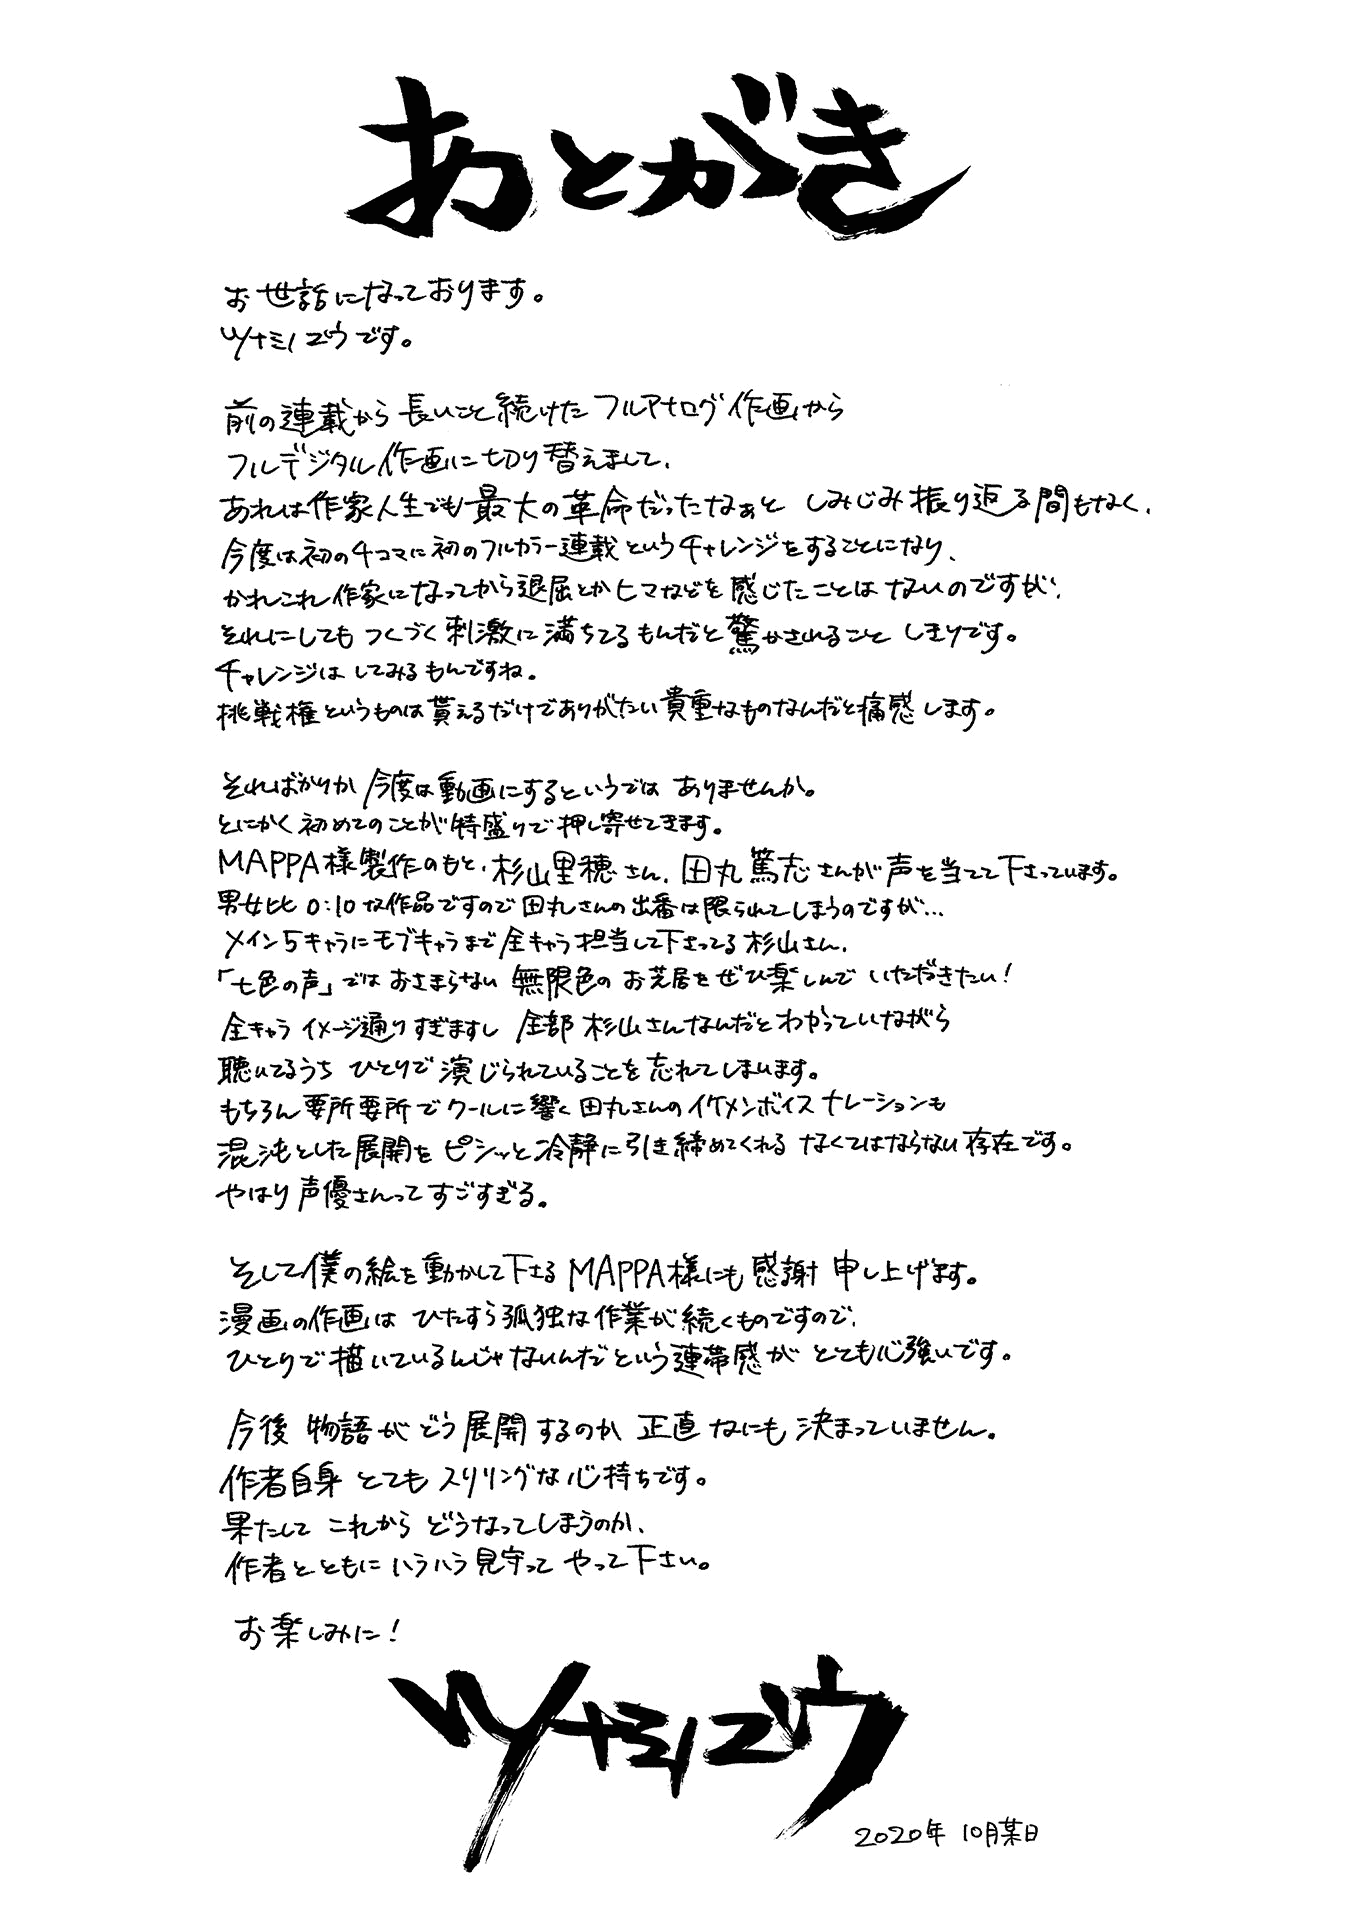 あとがき
お世話になっております。
ツナミノユウです。
前の連載から長いこと続けたフルアナログ作画から
フルデジタル作画に切り替えまして、
あれは作家人生でも最大の革命だったなぁと しみじみ振り返る間もなく、
今度は初の4コマに初のフルカラー連載というチャレンジをすることになり、
かれこれ作家になってから退屈とかヒマなどを感じたことはないのですが、
それにしてもつくづく刺激に満ちてるもんだと驚かされること しきりです。
チャレンジは してみるもんですね。
挑戦権というものは貰えるだけでありがたい貴重なものなんだと痛感します。
そればかりか今度は動画にするというではありませんか。
とにかく初めてのことが特盛りで押し寄せてきます。
MAPPA様製作のもと、杉山里穂さん、田丸篤志さんが声を当てて下さっています。
男女比0:10な作品ですので田丸さんの出番は限られてしまうのですが…
メイン5キャラにモブキャラまで全キャラ担当して下さってる杉山さん、
「七色の声」ではおさまらない 無限色のお芝居をぜひ楽しんでいただきたい!
全キャライメージ通りすぎますし 全部杉山さんなんだとわかっていながら
聴いてるうちひとりで演じられていることを忘れてしまいます。
もちろん要所要所でクールに響く田丸さんのイケメンボイスナレーションも
混沌とした展開をピシッと冷静に引き締めてくれる なくてはならない存在です。
やはり声優さんってすごすぎる。
そして僕の絵を動かして下さるMAPPA様にも感謝申し上げます。
漫画の作画は ひたすら孤独な作業が続くものですので、
ひとりで描いているんじゃないんだという連帯感が とても心強いです。
今後 物語がどう展開するのか 正直なにも決まっていません。
作者自身 とてもスリリングな心持ちです。
果たして これから どうなってしまうのか、
作者とともにハラハラ見守って やって下さい。
お楽しみに!
ツナミノユウ
2020年 10月某日